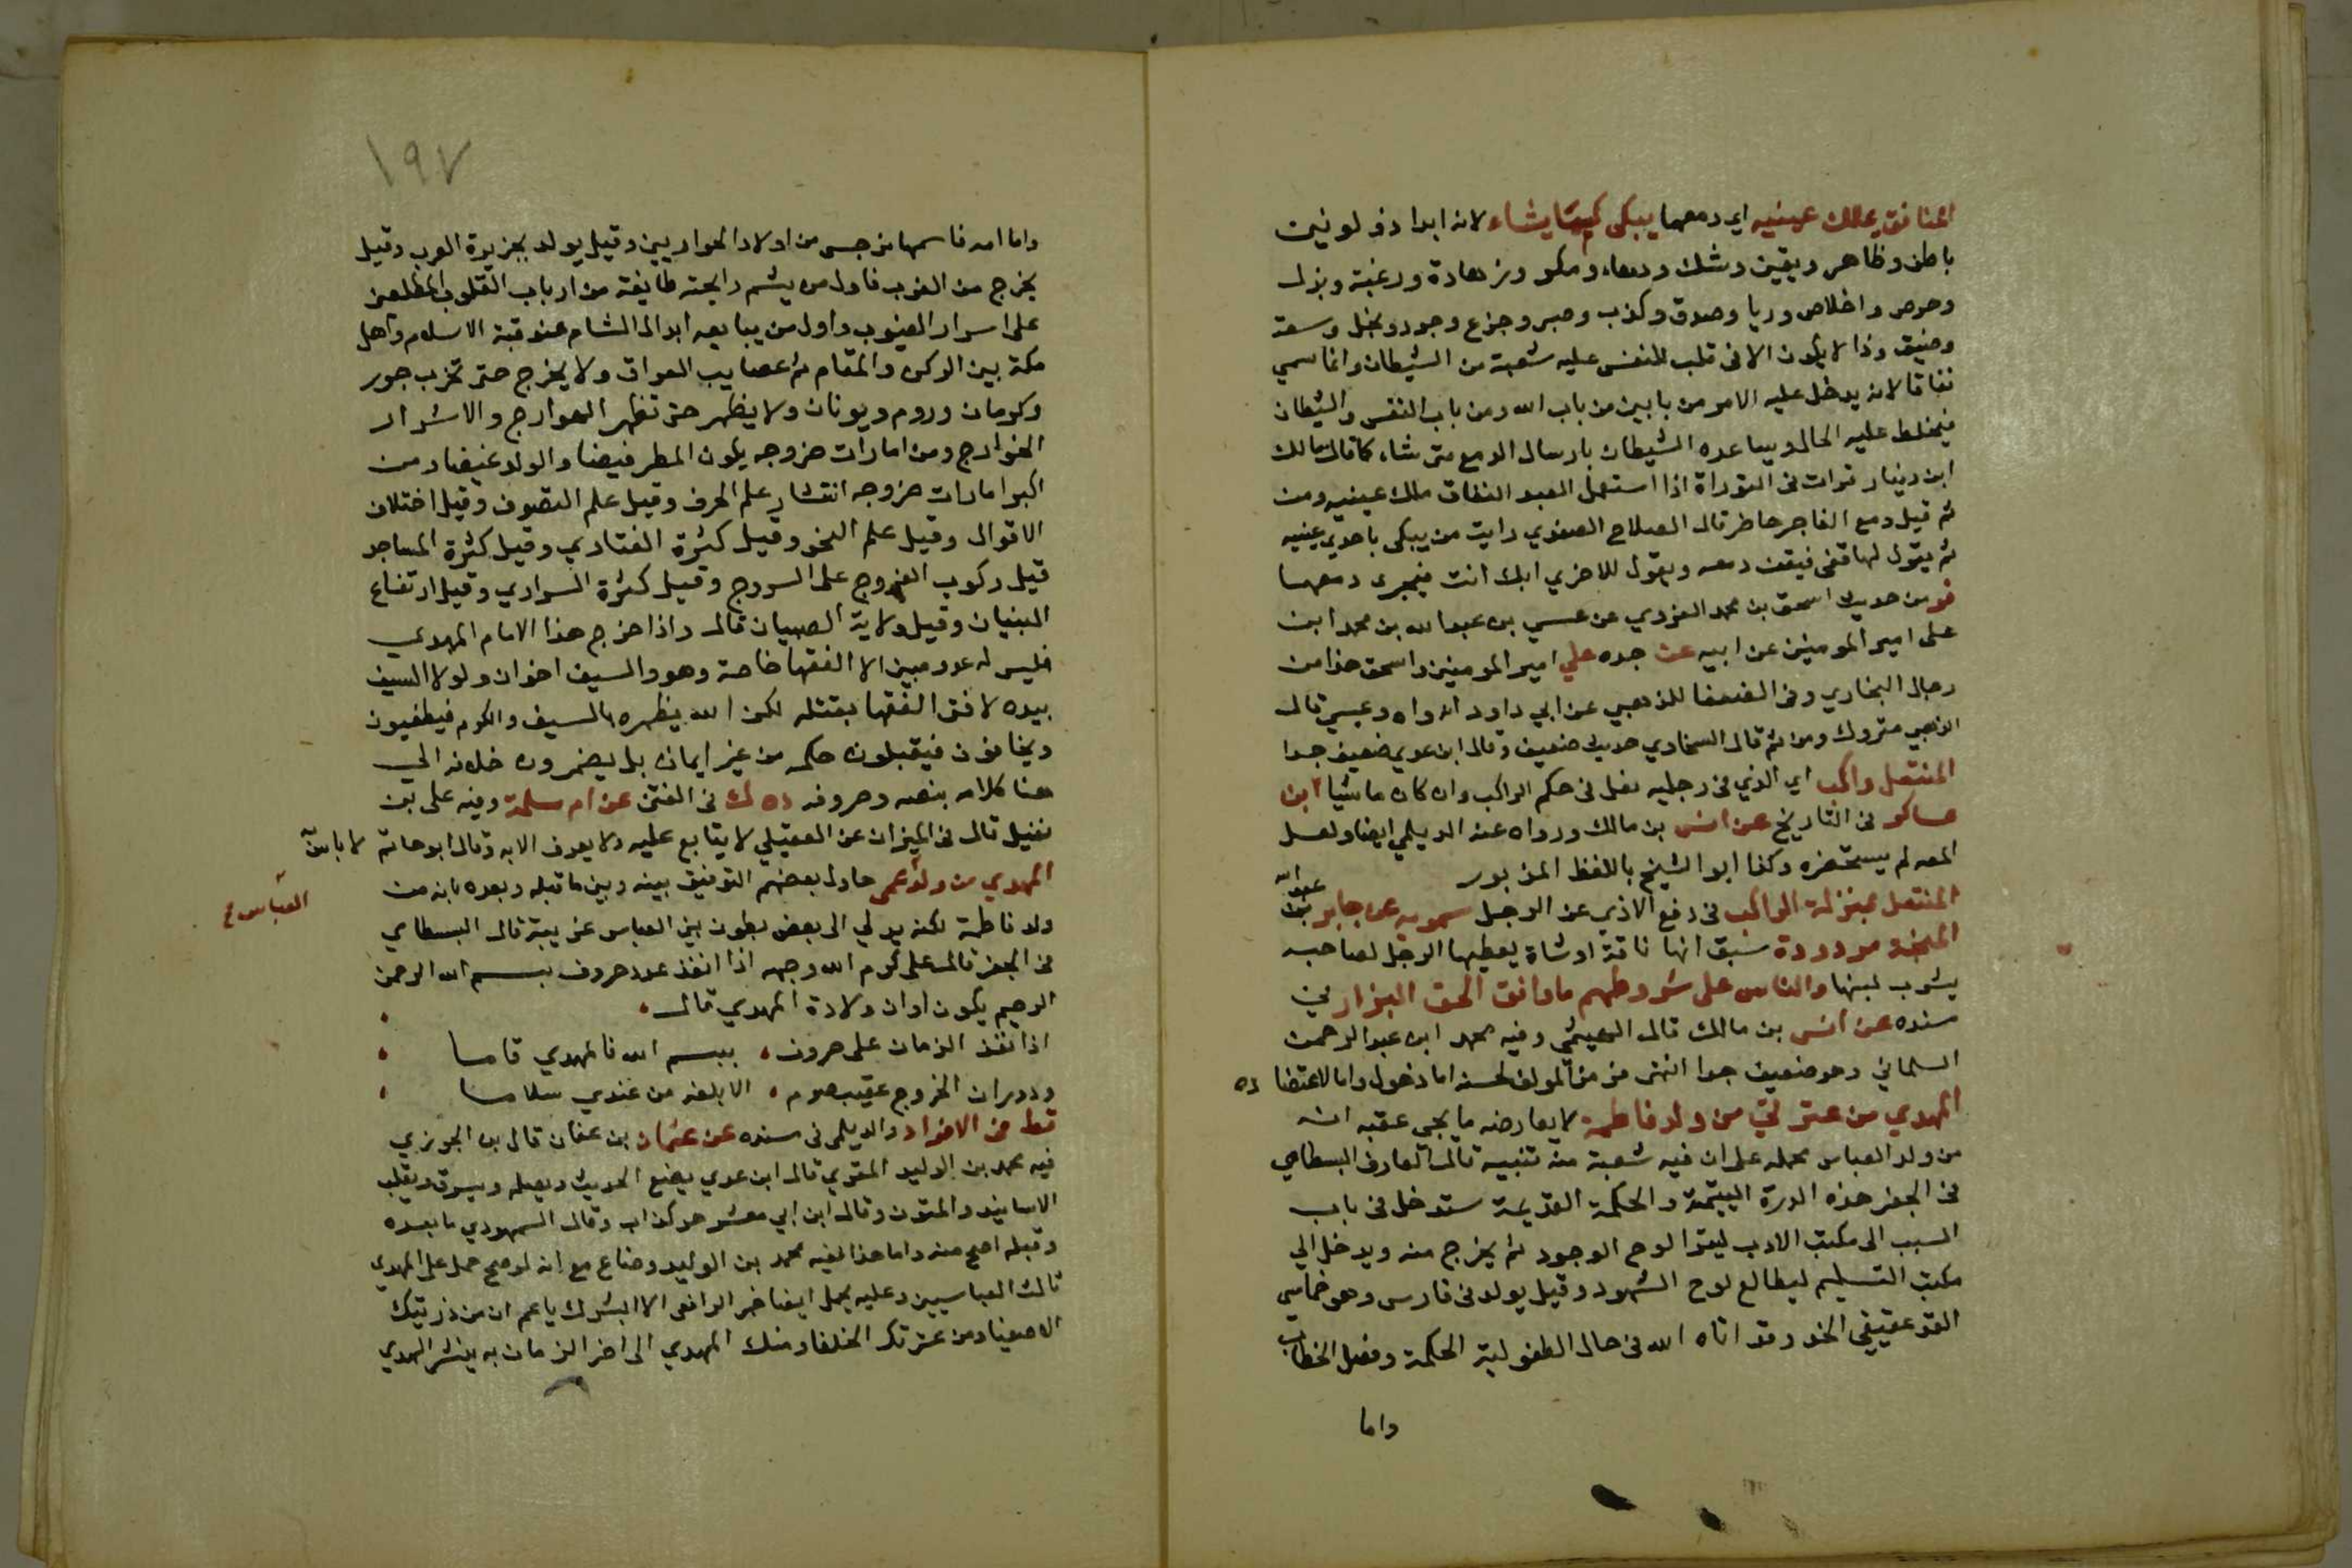 المنافق يملك عينيه اي دمعهما يبكي كما يشاء لانه ابدا ذو لونين
باطن وظاهر ويقين وشك ومكر وزهادة ورغبة وبذل
وحرص واخلاص وريا وصدق وكذب وصبر وجزع وجود وبخل وسعة
وضيق وذا لا يكون الا في قلب للنفس عليه شعبة من الشيطان وانما سمي
نفاقا لانه يدخل عليه الامر من بابين من باب الله ومن باب النفس والشيطان
فيختلط عليه الحال ويساعده الشيطان بارسال الدمع متى شاء كما قال مالك
ابن دينار قرات في التوراة اذا استكمل العبد النفاق ملك عينيه ومن
ثم قيل دمع الفاجر حاضر قال الصلاح الصفدي رايت من يبكي باحدي عينيه
ثم يقول لها قفي فيقف دمعه ويقول للاخري ابك انت فيجري دمعها
فر من حديث اسحق بن محمد الفروي عن عيسي بن عبدالله بن محمد ابن
علي امير المومنين عن ابيه عن جده علي امير المومنين واسحق هذا من
رجال البخاري وفي الضعفا للذهبي عن ابي داود انه واه وعيسي قال
الذهبي متروك ومن ثم قال السخاوي حديث ضعيف وقال ابن عدي ضعيف جدا
المنتعل راكب اي الذي في رجليه نعل في حكم الراكب وان كان ماشيا ابن
عساكر في التاريخ عن انس بن مالك ورواه عنه الديلمي ايضا ولعل
المصه لم يستحضره وكذا ابو الشيخ باللفظ المزبور
المنتعل بمنزلة الراكب في دفع الاذي عن الرجل سمويه عن جابر بن عبدالله
المنحة مردودة سبق انها ناقة او شاة يعطيها الرجل لصاحبه
يشرب لبنها والناس على شروطهم ما وافق الحق البزار في
مسنده عن انس بن مالك قال الهيثمي وفيه محمد ابن عبدالرحمن
السلماني وهو ضعيف جدا انتهى فرمز المولف لحسنه اما ذهول واما لاعتضا ده
المهدي من عترتي من ولد فاطمة لا يعارضه ما يجي عقبه انه
من ولد العباس محمله على ان فيه شعبة منه تنبيه قال العارف البسطامي
في الجفر هذه الدرة اليتيمة والحكمة القديمة ستدخل في باب
السبب الى مكتب الادب ليقرا لوح الوجود ثم يخرج منه ويدخل الى
مكتب التسليم ليطالع لوح الشهود وقيل يولد في فارس وهو خماسي
القد عقيقي الخد وقد اتاه الله في حال الطفولية الحكمة وفصل الخطاب
واما
١٩٧
واما امه فاسمها نرجس من اولاد الحواريين وقيل يولد بجزيرة العرب وقيل
يخرج من الغرب فاول من يشم رايحته طايفة من ارباب القلوب المطلعين
على اسرار الغيوب واول من يبايعه ابدال الشام عند قبة الاسلام واهل
مكة بين الركن والمقام ثم عصايب العراق ولا يخرج حتى تخرب جور
وكرمان وروم ويونان ولا يظهر حتى تظهر الخوارج والاشرار
الخوارج ومن امارات خروجه يكون المطر فيضا والولد غيضا ومن
اكبر امارات خروجه انتشار علم الحرف وقيل علم التصوف وقيل اختلاف
الاقوال وقيل علم النحو وقيل كثرة الفتاوي وقيل كثرة المساجد
قيل ركوب الفروج على السروج وقيل كثرة السراري وقيل ارتفاع
البنيان وقيل ولاية الصبيان قال واذا خرج هذا الامام المهدي
فليس له عدو مبين الا الفقها خاصة وهو والسيف اخوان ولولا السيف
بيده لافتى الفقها بقتله لكن الله يظهره بالسيف والكرم فيطيعون
ويخافون فيقبلون حكمه من غير ايمان بل يضمرون خلافه الى
هنا كلامه بنصه وحروفه ده ك في الفتن عن ام سلمة وفيه علي بن
نفيل قال في الميزان عن العقيلي لا يتابع عليه ولا يعرف الا به وقال ابو حاتم لا باس به
المهدي من ولد عمي حاول بعضهم التوفيق بينه وبين ما قبله وبعده بانه من
العباس
ولد فاطمة لكنه يدلي الى بعض بطون بني العباس قال البسطامي
في الجفر قال علي كرم الله وجهه اذا انفذ عدد حروف بسم الله الرحمن
الرحيم يكون اوان ولادة المهدي قال
اذا نفذ الزمان على حروف ببسم الله فالمهدي قاما
ودوران الخروج عقيب صوم الا بلغه من عندي سلاما
قط في الافراد والديلمي في مسنده عن عثمان بن عفان قال بن الجوزي
فيه محمد بن الوليد المقري قال ابن عدي يضع الحديث ويصله ويسرق ويقلب
الاسانيد والمتون وقال ابن ابي معشر هو كذاب وقال السمهودي ما بعده
وقبله اصح منه واما هذا ففيه محمد بن الوليد وضاع مع انه لو صح حمل على المهدي
ثالث العباسيين وعليه يحمل ايضا خبر الرافعي الا ابشرك يا عم ان من ذريتك
الاصفيا ومن عترتك الخلفا ومنك المهدي الى اخر الزمان به ينشر الهدي